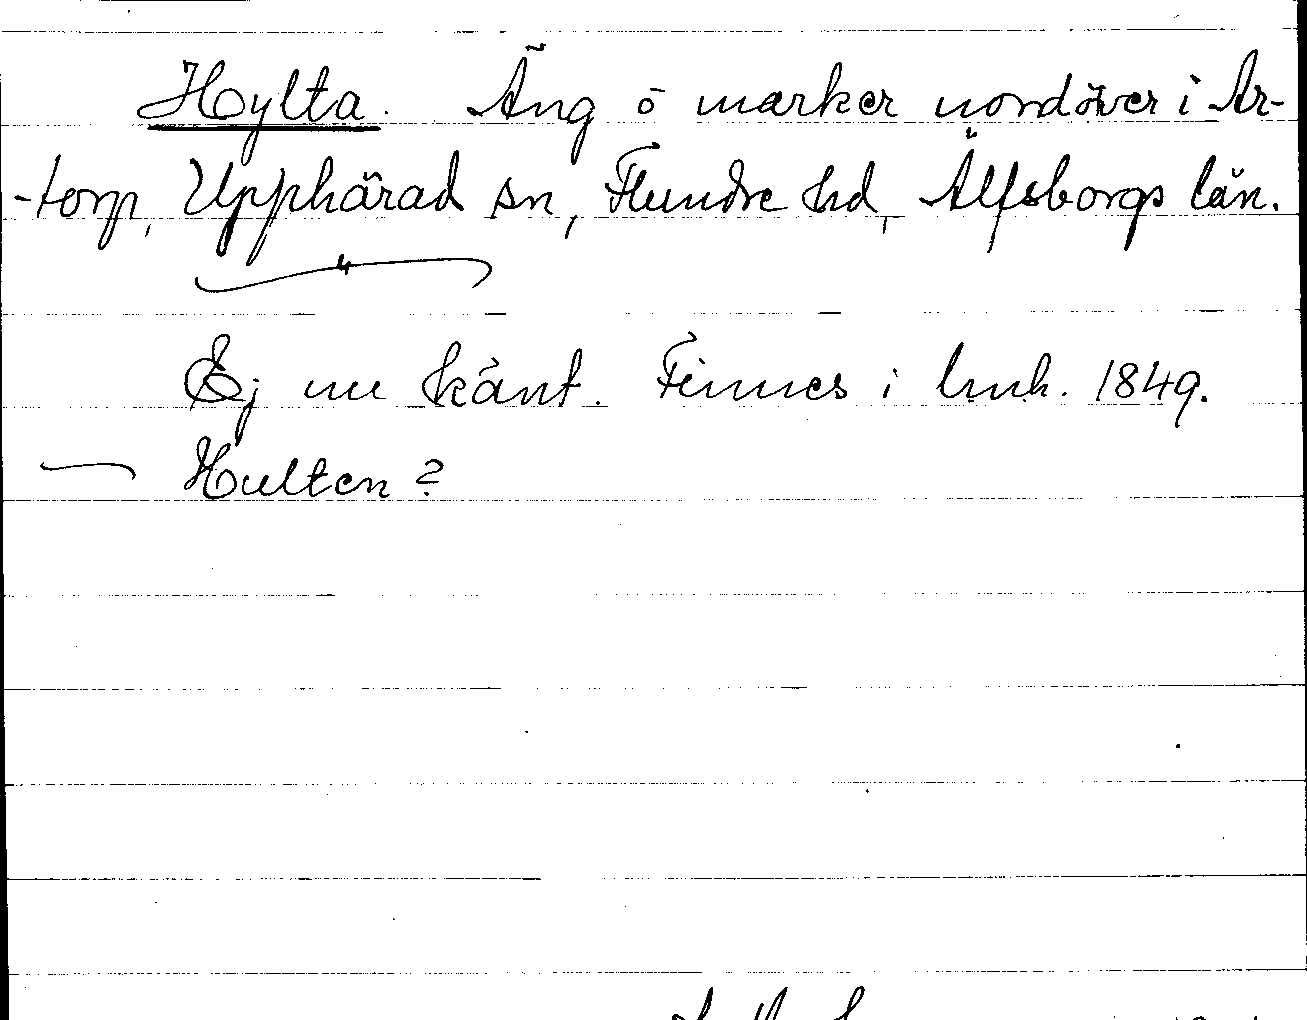 Hylta. Äng o marker nordöver i Ar-
-torp, Upphärad sn, Flundre hd, Älfsborgs län.
Ej nu känt. Finnes i lmh. 1849.
— Hulten?